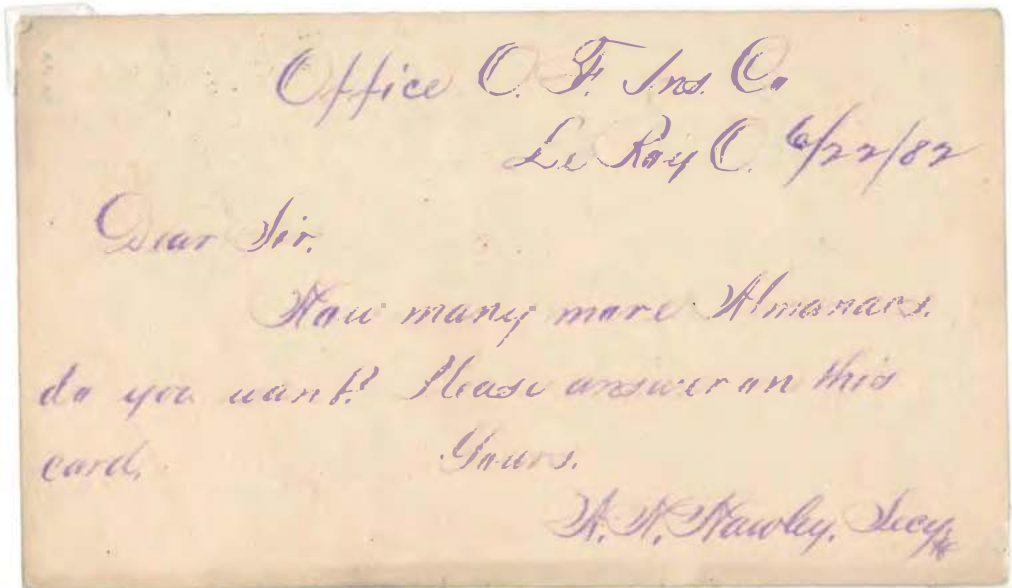 Office O. F. Ins. Co
Le Roy O. 6/22/82
Dear Sir.
How many more Almanacs.
do you want? Please answer on this
card. Yours.
A. H. Hawley. Secy.